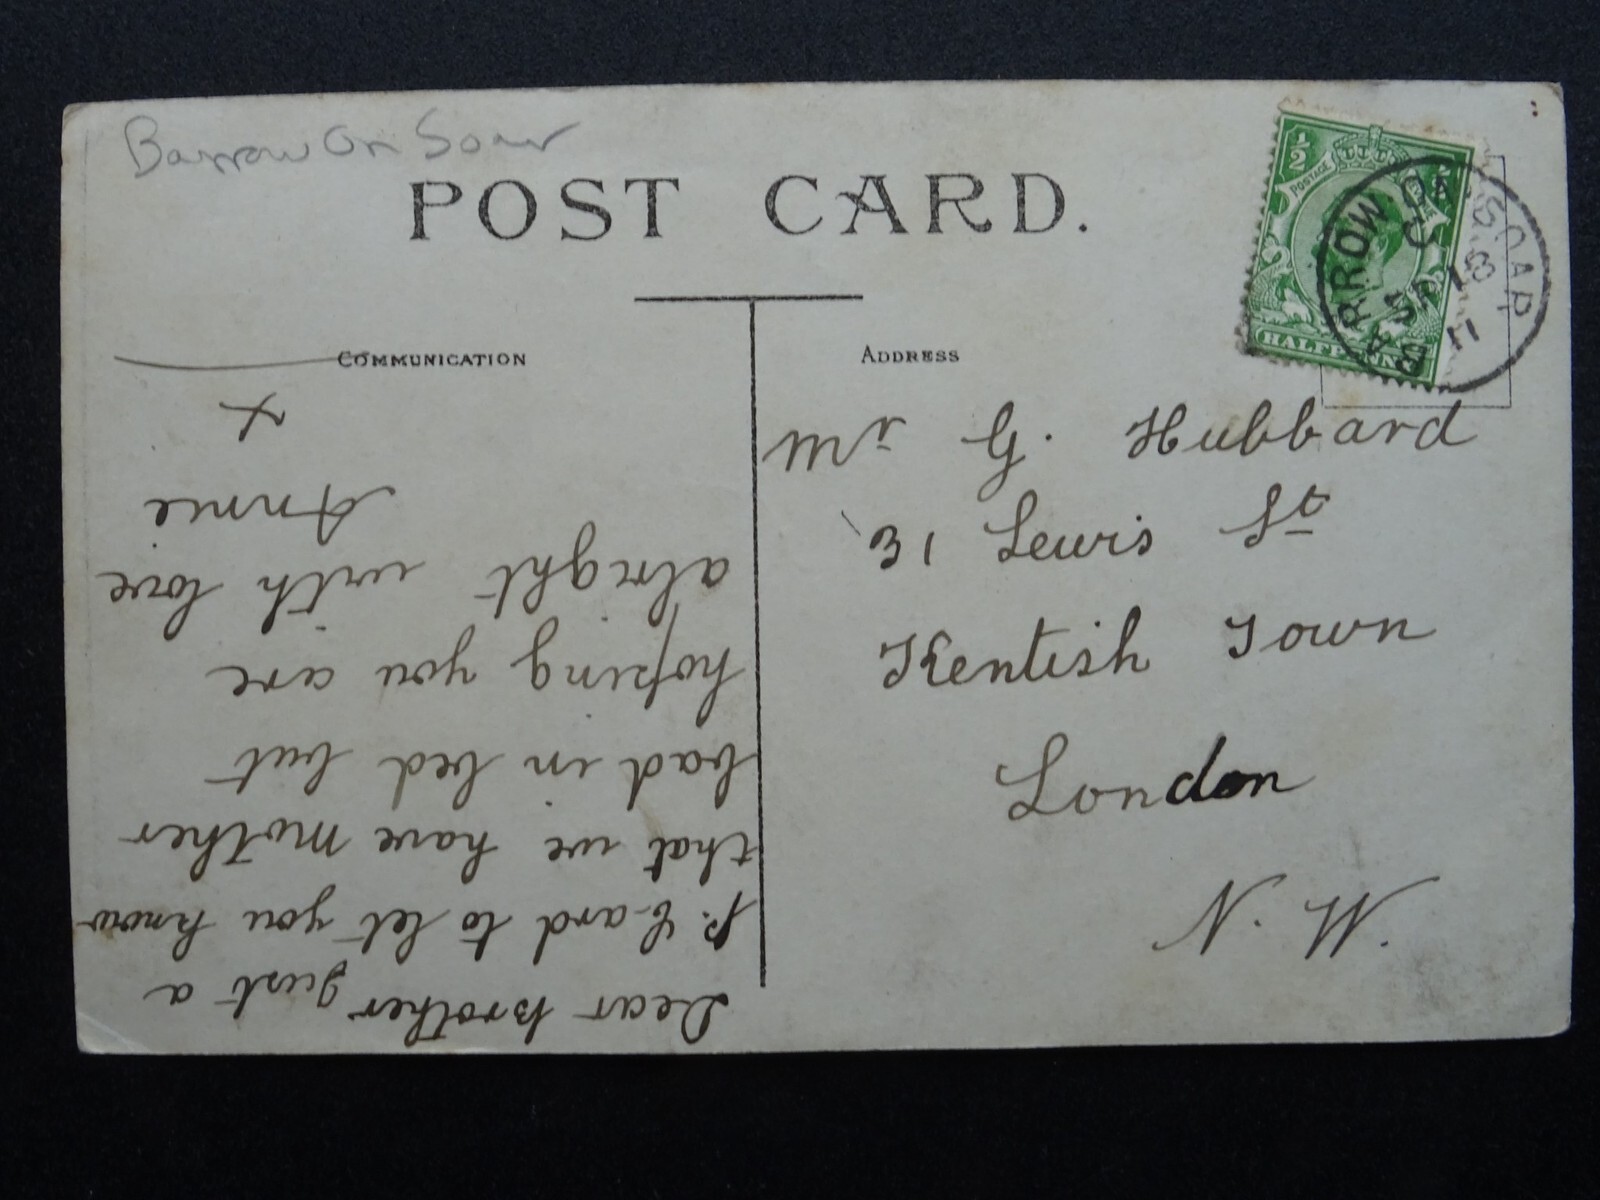 Barrow On Soar
POST CARD.
COMMUNICATION
ADDRESS
1/2
POSTAGE
HALFPENNY
BARROW. ON SOAR
11
Mr G. Hubbard
31 Lewis St
Kentish Town
London
N. W.
Dear Brother just a
p. Card to let you know
that we have mother
bad in bed but
hoping you are
alright with love
Annie
x